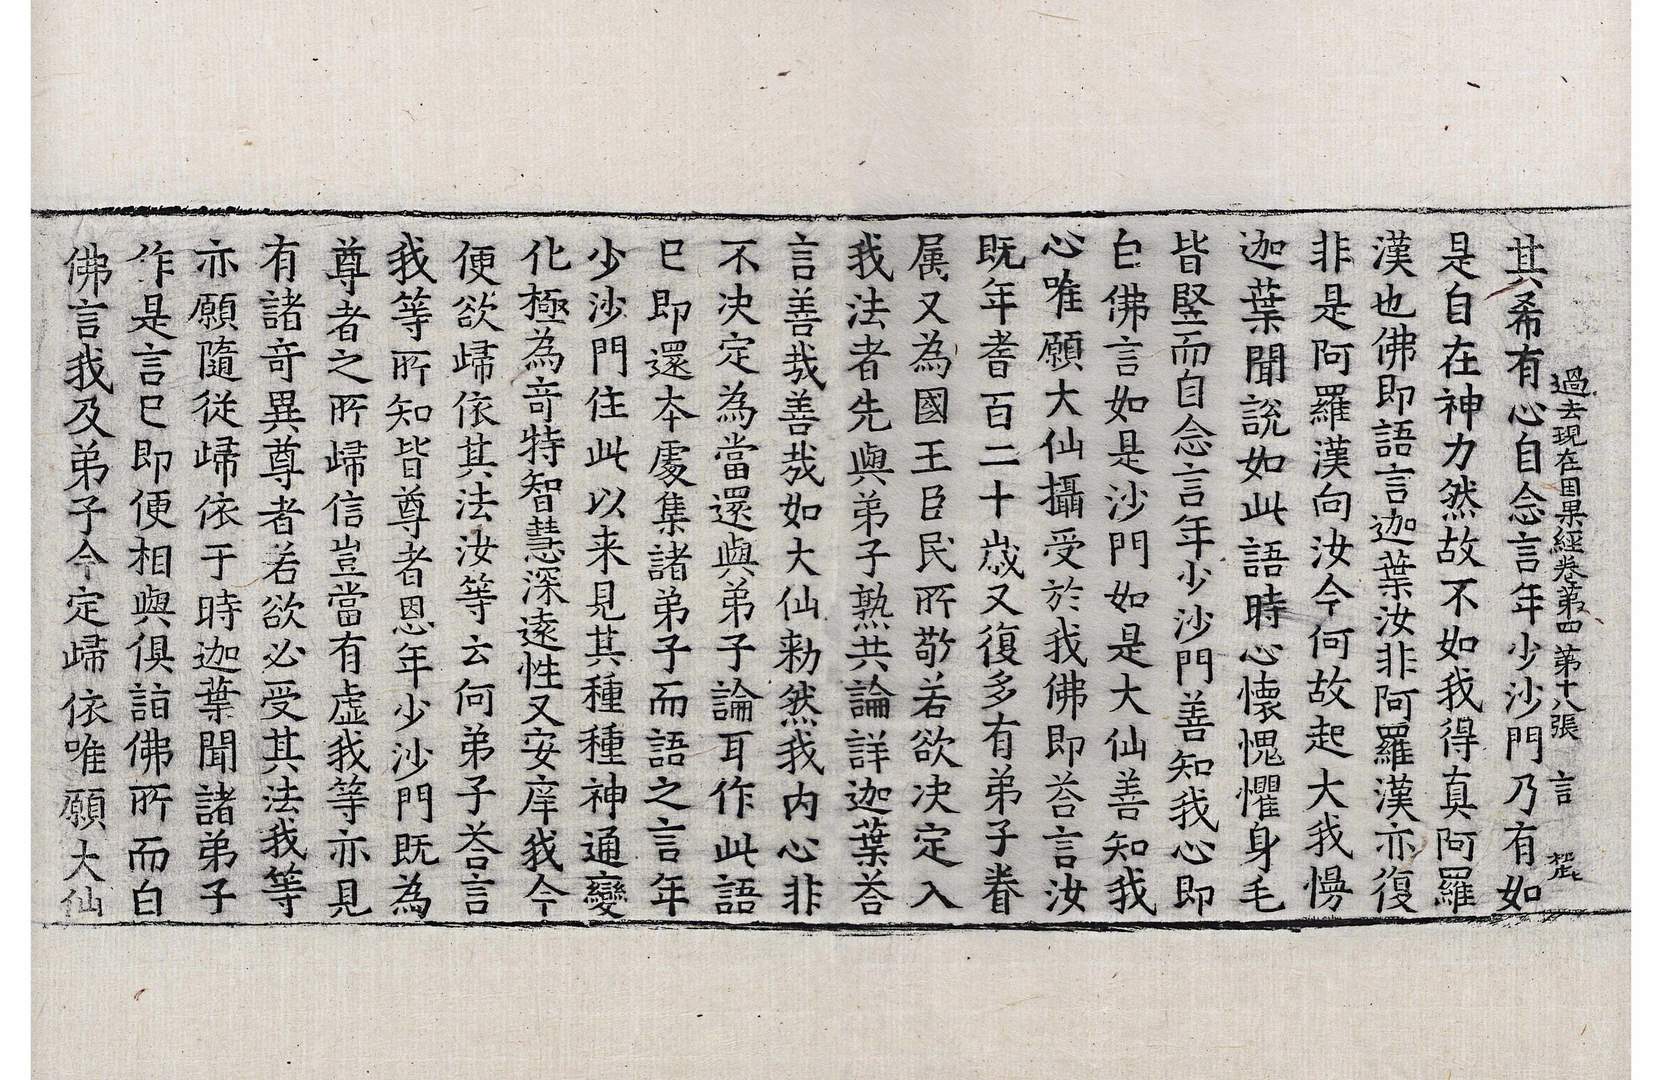 過去現在因果經卷第四　第十八張　言
其希有心自念言年少沙門乃有如
是自在神力然故不如我得真阿羅
漢也佛即語言迦葉汝非阿羅漢亦復
非是阿羅漢向汝今何故起大我慢
迦葉聞說如此語時心懷愧懼身毛
皆竪而自念言年少沙門善知我心即
白佛言如是沙門如是大仙善知我
心唯願大仙攝受於我佛即荅言汝
既年耆百二十歲又復多有弟子眷
属又為國王臣民所敬若欲決定入
我法者先與弟子熟共論詳迦葉荅
言善哉善哉如大仙勑然我内心非
不決定為當還與弟子論耳作此語
已即還本處集諸弟子而語之言年
少沙門住此以来見其種種神通變
化極為竒特智慧深遠性又安庠我今
便欲歸依其法汝等云何弟子荅言
我等所知皆尊者恩年少沙門既為
尊者之所歸信豈當有虛我等亦見
有諸竒異尊者若欲必受其法我等
亦願隨從歸依于時迦葉聞諸弟子
作是言已即便相與俱詣佛所而白
佛言我及弟子今定歸依唯願大仙